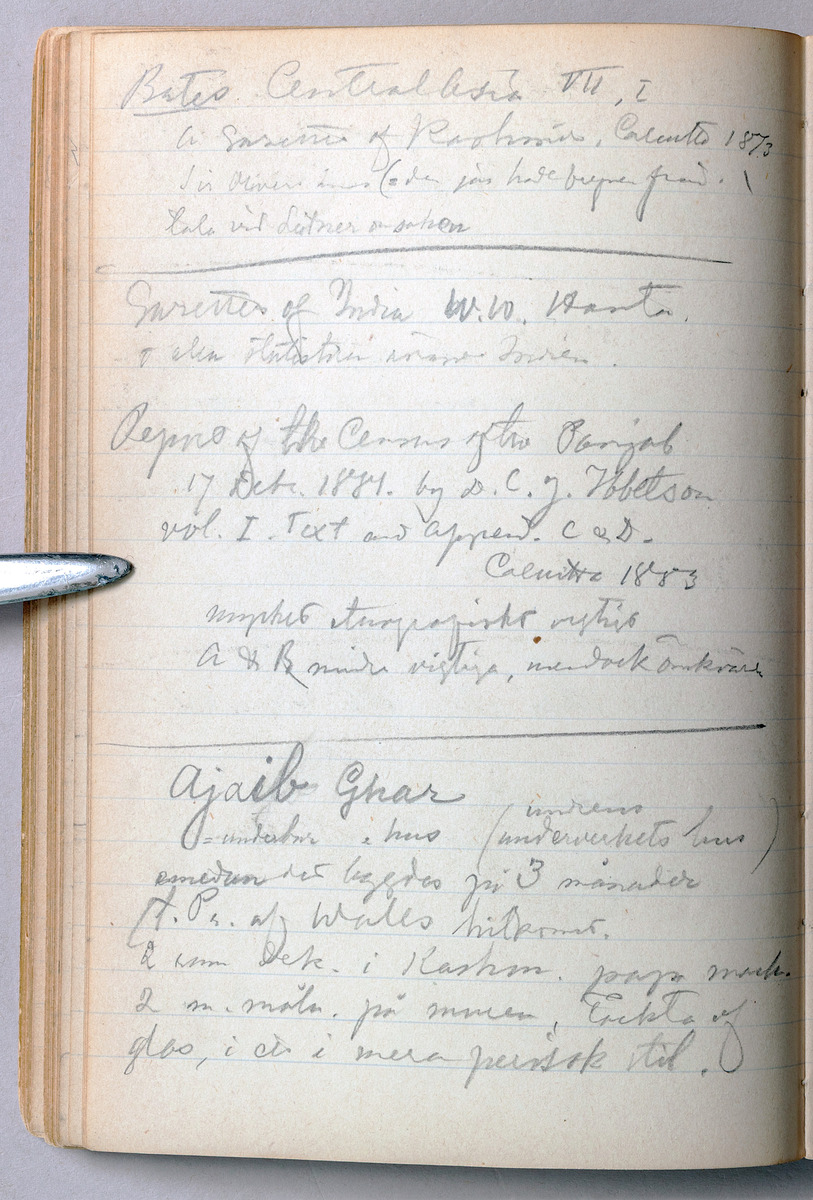 Bates Central Asia VII, I
A Gazetteer of Kashmir, Calcutta 1873
Sir Olivers (= den jag hade
tala vid Leitner om saken
Gazetteer of India W.W. Hunter.
Indien.
Report of the Census of the Panjab
17 Febr. 1881. by D. C. J. Ibbetson
vol. I. Text and Append. C & D.
Calcutta 1883
mycket etnografiskt vigtigt
A & B mindre vigtiga, men dock
Ajaib Ghar
= underbar hus (undrens
underverkets hus)
emedan det byggdes på 3 månader
t. Pr. af Wales hitkomst.
2 rum dek. i Kashm. papp mach.
2 m. måln. på muren, täckta af
glas, i en i mera persisk stil.